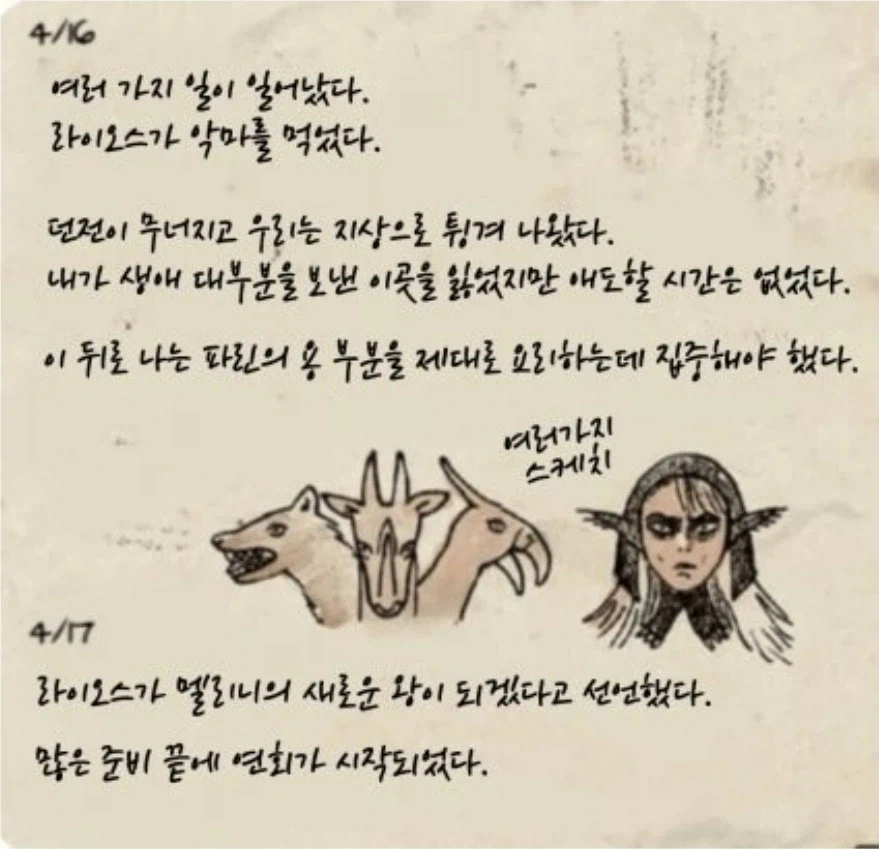 4/16
여러 가지 일이 일어났다.
라이오스가 악마를 먹었다.
던전이 무너지고 우리는 지상으로 튕겨 나왔다.
내가 생애 대부분을 보낸 이곳을 잃었지만 애도할 시간은 없었다.
이 뒤로 나는 파린의 용 부분을 제대로 요리하는데 집중해야 했다.
여러가지
스케치
4/17
라이오스가 멜리니의 새로운 왕이 되겠다고 선언했다.
많은 준비 끝에 연회가 시작되었다.